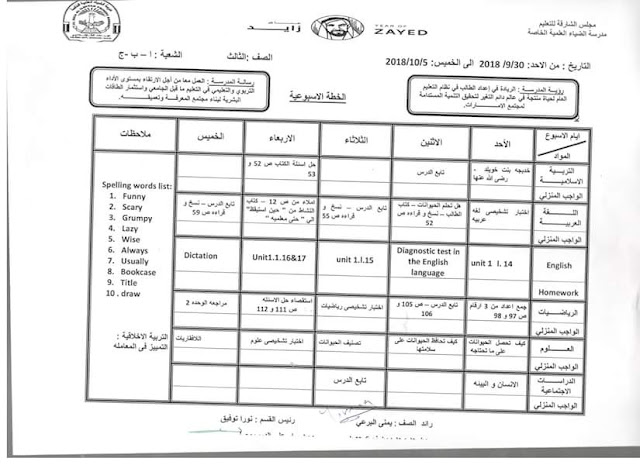 مجلس الشارقة للتعليم
مدرسة الضياء العلمية الخاصة
YEAR OF
ZAYED
زايد
التاريخ : من الاحد: 9/30/ 2018 الى الخميس: 2018/10/5
الصف :الثالث
الشعبة : ا – ب - ج
رؤية المدرسة : الريادة في إعداد الطالب في نظام التعليم
العام لحياة منتجة في عالم دائم التغير لتحقيق التنمية المستدامة
لمجتمع الامارات.
الخطة الاسبوعية
رسالة المدرسة : العمل معا من أجل الارتقاء بمستوى الأداء
التربوي والتعليمي في التعليم ما قبل الجامعي واستثمار الطاقات
البشرية لبناء مجتمع المعرفة
ايام الاسبوع
المواد
الأحد
الاثنين
الثلاثاء
الاربعاء
الخميس
ملاحظات
التربية
الاسلامية
خديجه بنت خويلد -
رضى الله عنها
تابع الدرس
حل اسئلة الكتاب ص 52 و
53
الواجب المنزلي
اللغة
العربية
اختبار تشخيصى لغه
عربيه
هل تحلم الحيوانات – كتاب
الطالب – نسخ و قراءه ص
52
تابع الدرس – نسخ و
قراءه ص 55
املاء من ص 12 – كتاب
النشاط من " حين استيقظ"
الي " حتى معلميه "
تابع الدرس – نسخ و
قراءه ص 59
الواجب المنزلي
English
unit 1 l. 14
Diagnostic test in
the English
language
unit 1.l.15
Unit1.1.16&17
Dictation
Homework
Spelling words list:
1. Funny
2. Scary
3. Grumpy
4. Lazy
5. Wise
6. Always
7. Usually
8. Bookcase
9. Title
10 . draw
الرياضيات
جمع اعداد من 3 ارقام
ص 97 و 98
تابع الدرس – ص 105 و
106
اختبار تشخيصى رياضيات
استقصاء حل الاسئله
ص 111 و 112
مراجعه الوحده 2
الواجب المنزلي
العلوم
كيف تحصل الحيوانات
على ما تحتاجه
كيف تحافظ الحيوانات على
سلامتها
تصنيف الحيوانات
اختبار تشخيصى علوم
اللافقاريات
التربية الاخلاقية :
التمييز فى المعامله
الواجب المنزلي
الدراسات
الاجتماعية
الانسان و البيئه
تابع الدرس
الواجب المنزلي
رائد الصف : يمنى البرعي
رئيس القسم : نورا توفيق